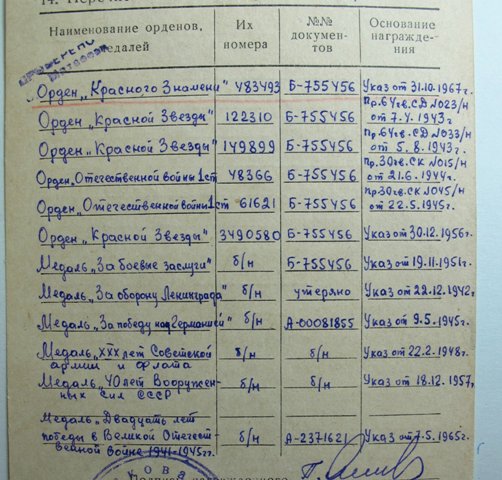 Наименование орденов, медалей | Их номера | №№ документов | Основание награждения
Орден „Красного Знамени" 483493 Б-755456 Указ от 31.10.1967г.
Орден „Красной Звезды" 122310 Б-755456 Пр. 64гв.СД №023/Н от 7.4.1943г
Орден „Красной Звезды" 149899 Б-755456 Пр. 64гв.СД №033/Н от 5.8.1943г.
Орден „Отечественной войны 1 ст 48366 Б-755456 Пр. 30гв.СК №015/Н от 21.6.1944г.
Орден „Отечественной войны 1 ст 61621 Б-755456 Пр 30гв.СК №045/Н от 22.5.1945г.
Орден „Красной Звезды" 3490580 Б-755456 Указ от 30.12.1956г.
Медаль „За боевые заслуги" б/н Б-755456 Указ от 19.11.1951г.
Медаль „За оборону Ленинграда" б/н утеряно Указ от 22.12.1942г.
Медаль „За победу над Германией" б/н А-00081855 Указ от 9.5.1945г.
Медаль „XXX лет Советской б/н б/н Указ от 22.2.1948г.
армии и флота
Медаль „40 лет Вооружен- б/н б/н Указ от 18.12.1957г.
ных сил СССР
Медаль „Двадцать лет
победы в Великой Отечест б/н А-2371621 Указ от 7.5.1965г.
венной войне 1941-1945гг.